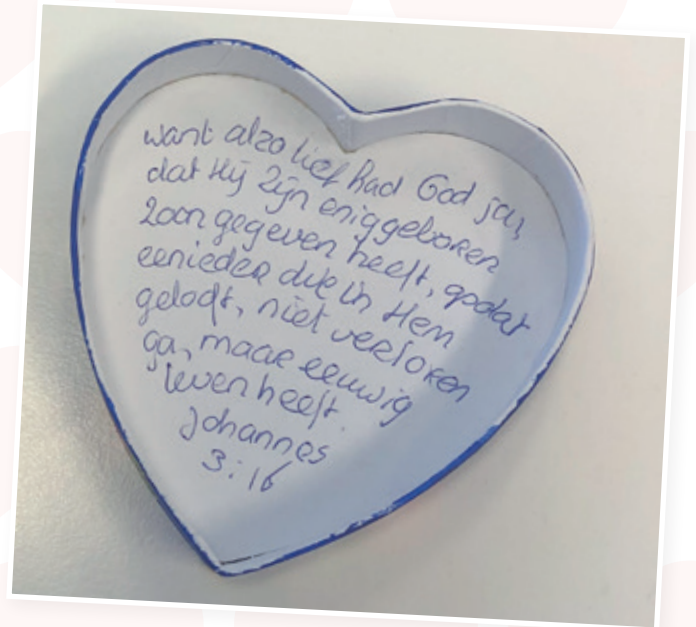 want alzo lief had God jou,
dat Hij Zijn eniggeboren
Zoon gegeven heeft, opdat
eenieder die in Hem
gelooft, niet verloren
ga, maar eeuwig
leven heeft.
Johannes
3:16